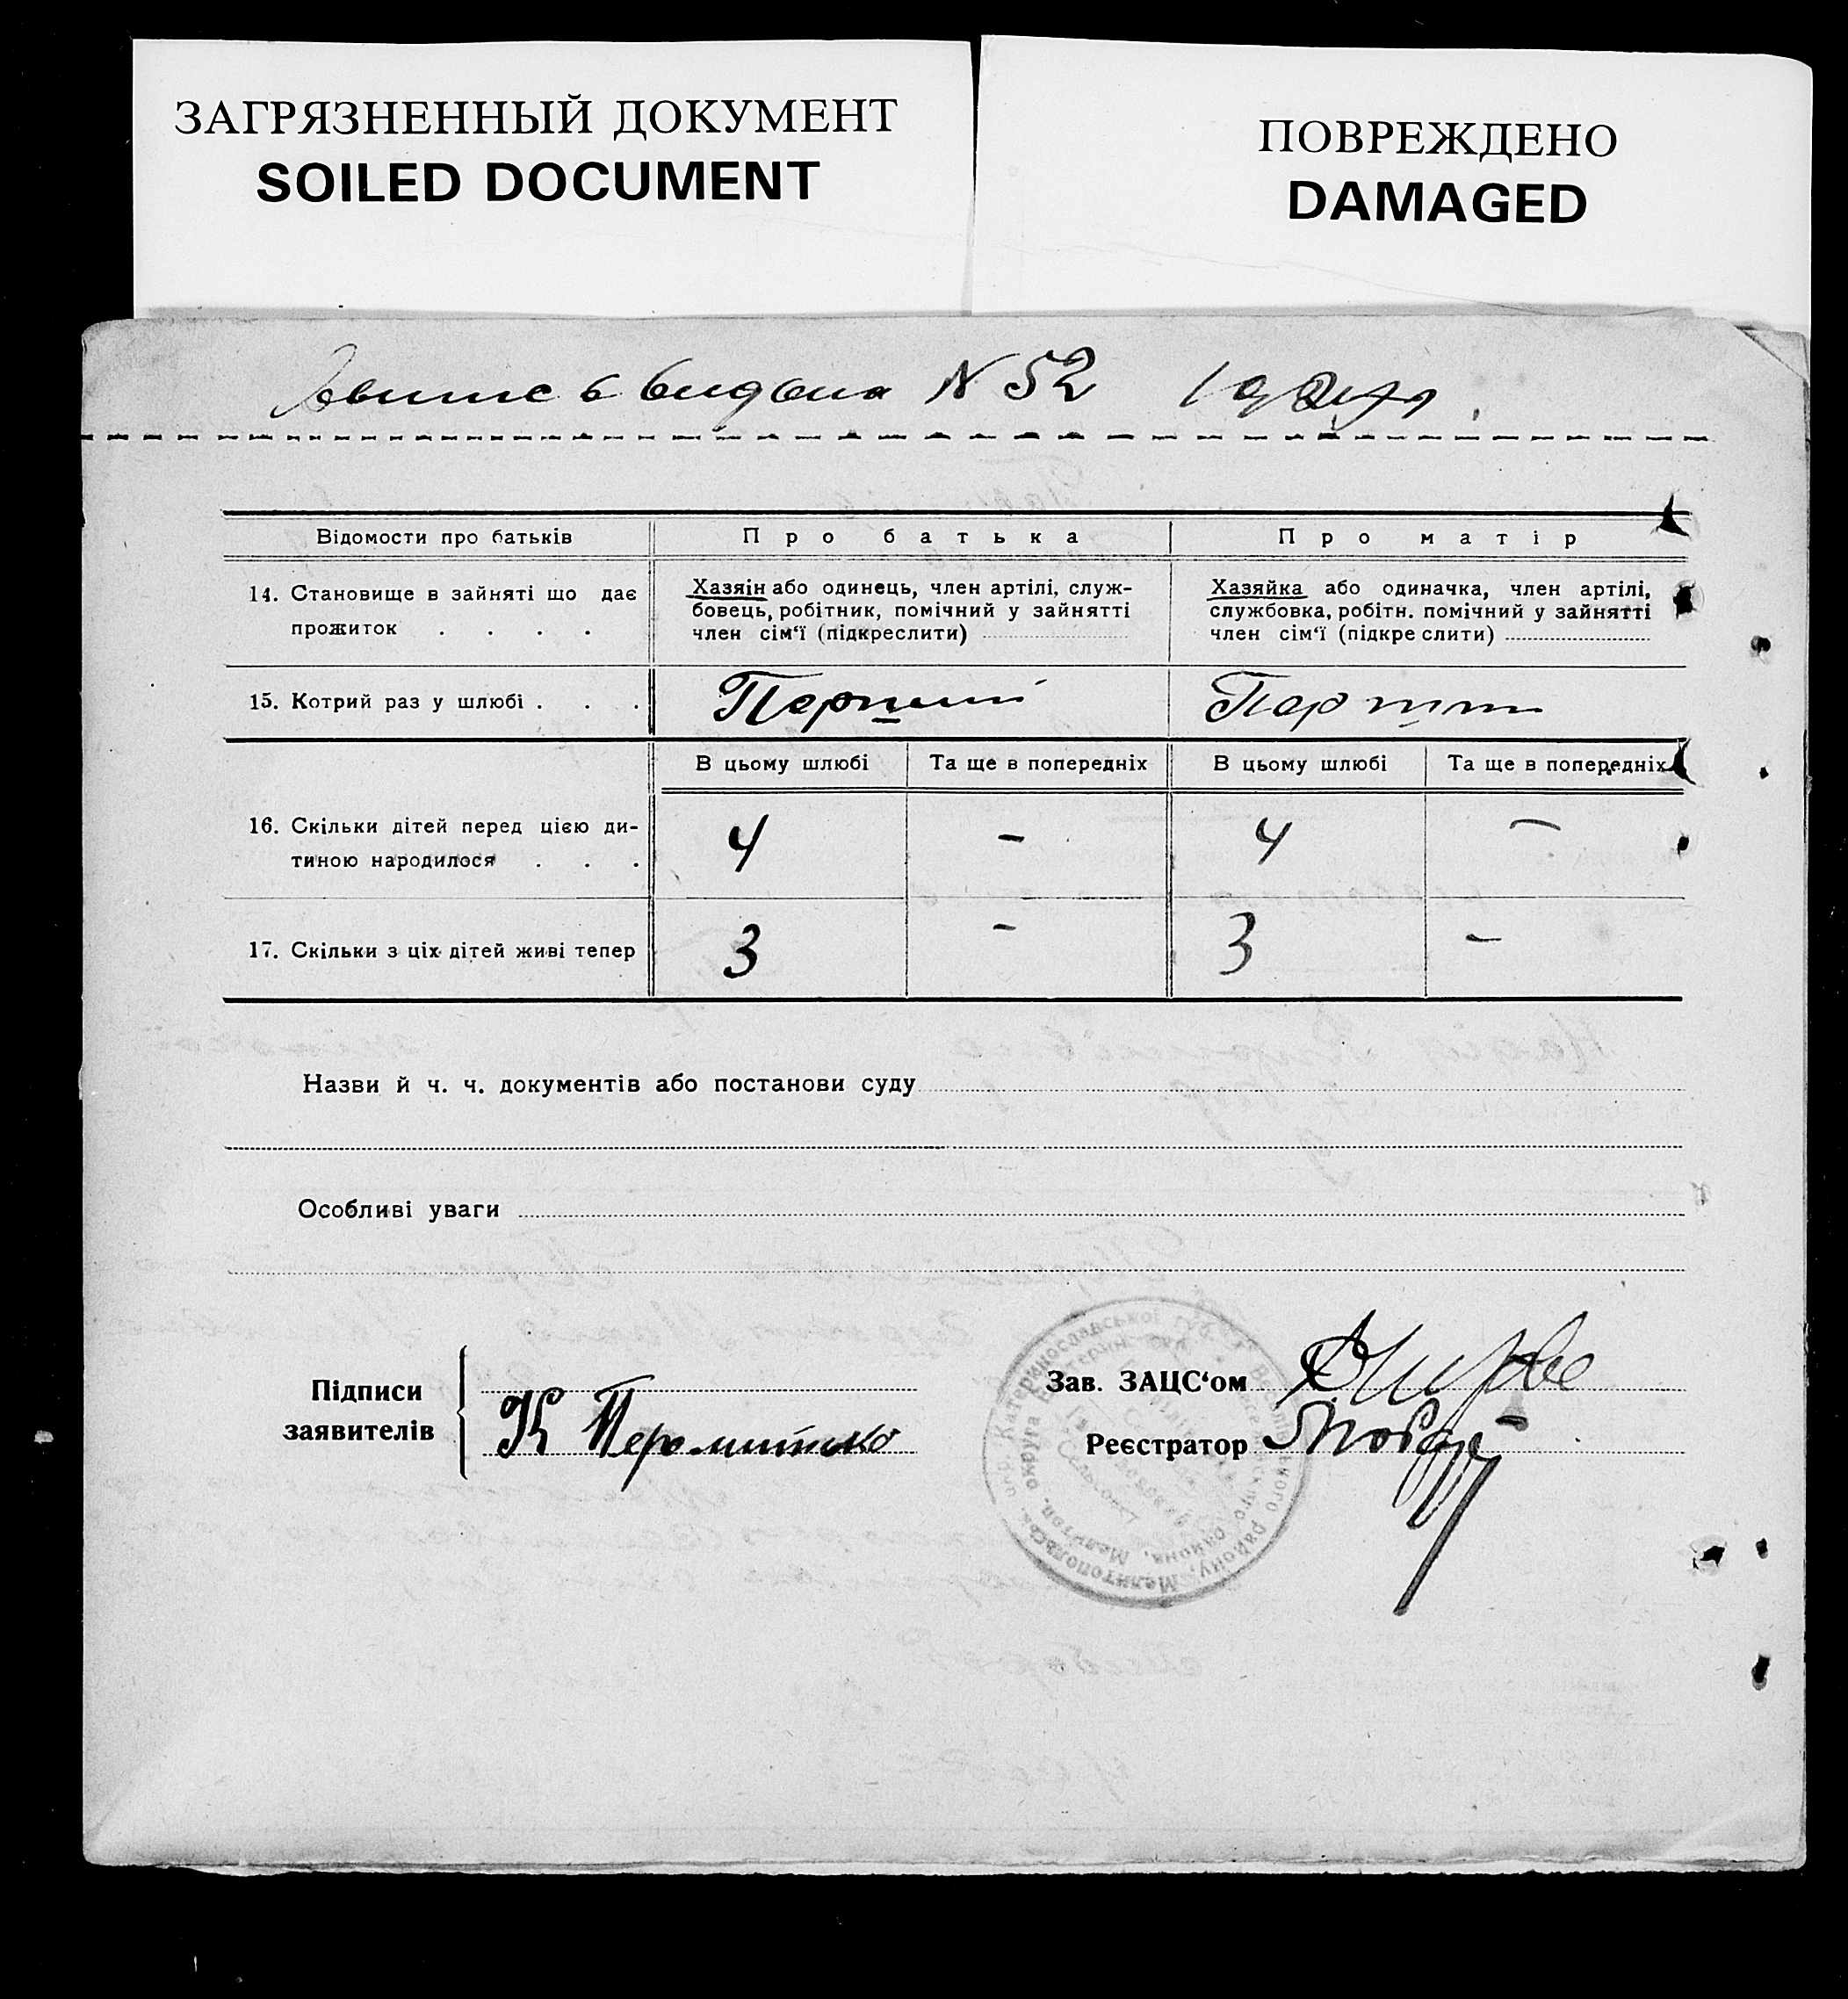 ЗАГРЯЗНЕННЫЙ ДОКУМЕНТ
SOILED DOCUMENT
ПОВРЕЖДЕНО
DAMAGED
N 52
Відомости про батьків
Про батька
Про матір
14. Становище в зайняті що дає
прожиток . . . .
Хазяін або одинець, член артілі, служ-
бовець, робітник, помічний у зайнятті
член сім'ї (підкреслити)
Хазяйка або одиначка, член артілі,
службовка, робітн. помічний у зайнятті
член сім'ї (підкре слити)
15. Котрий раз у шлюбі . . .
Перший
Перший
В цьому шлюбі
Та ще в попередніх
В цьому шлюбі
Та ще в попередніх
16. Скільки дітей перед цією ди-
тиною народилося . . .
4
-
4
-
17. Скільки з ціх дітей живі тепер
3
-
3
-
Назви й ч. ч. документів або постанови суду
Особливі уваги
Підписи
заявителів
К
Зав. ЗАЦС'ом
Реєстратор